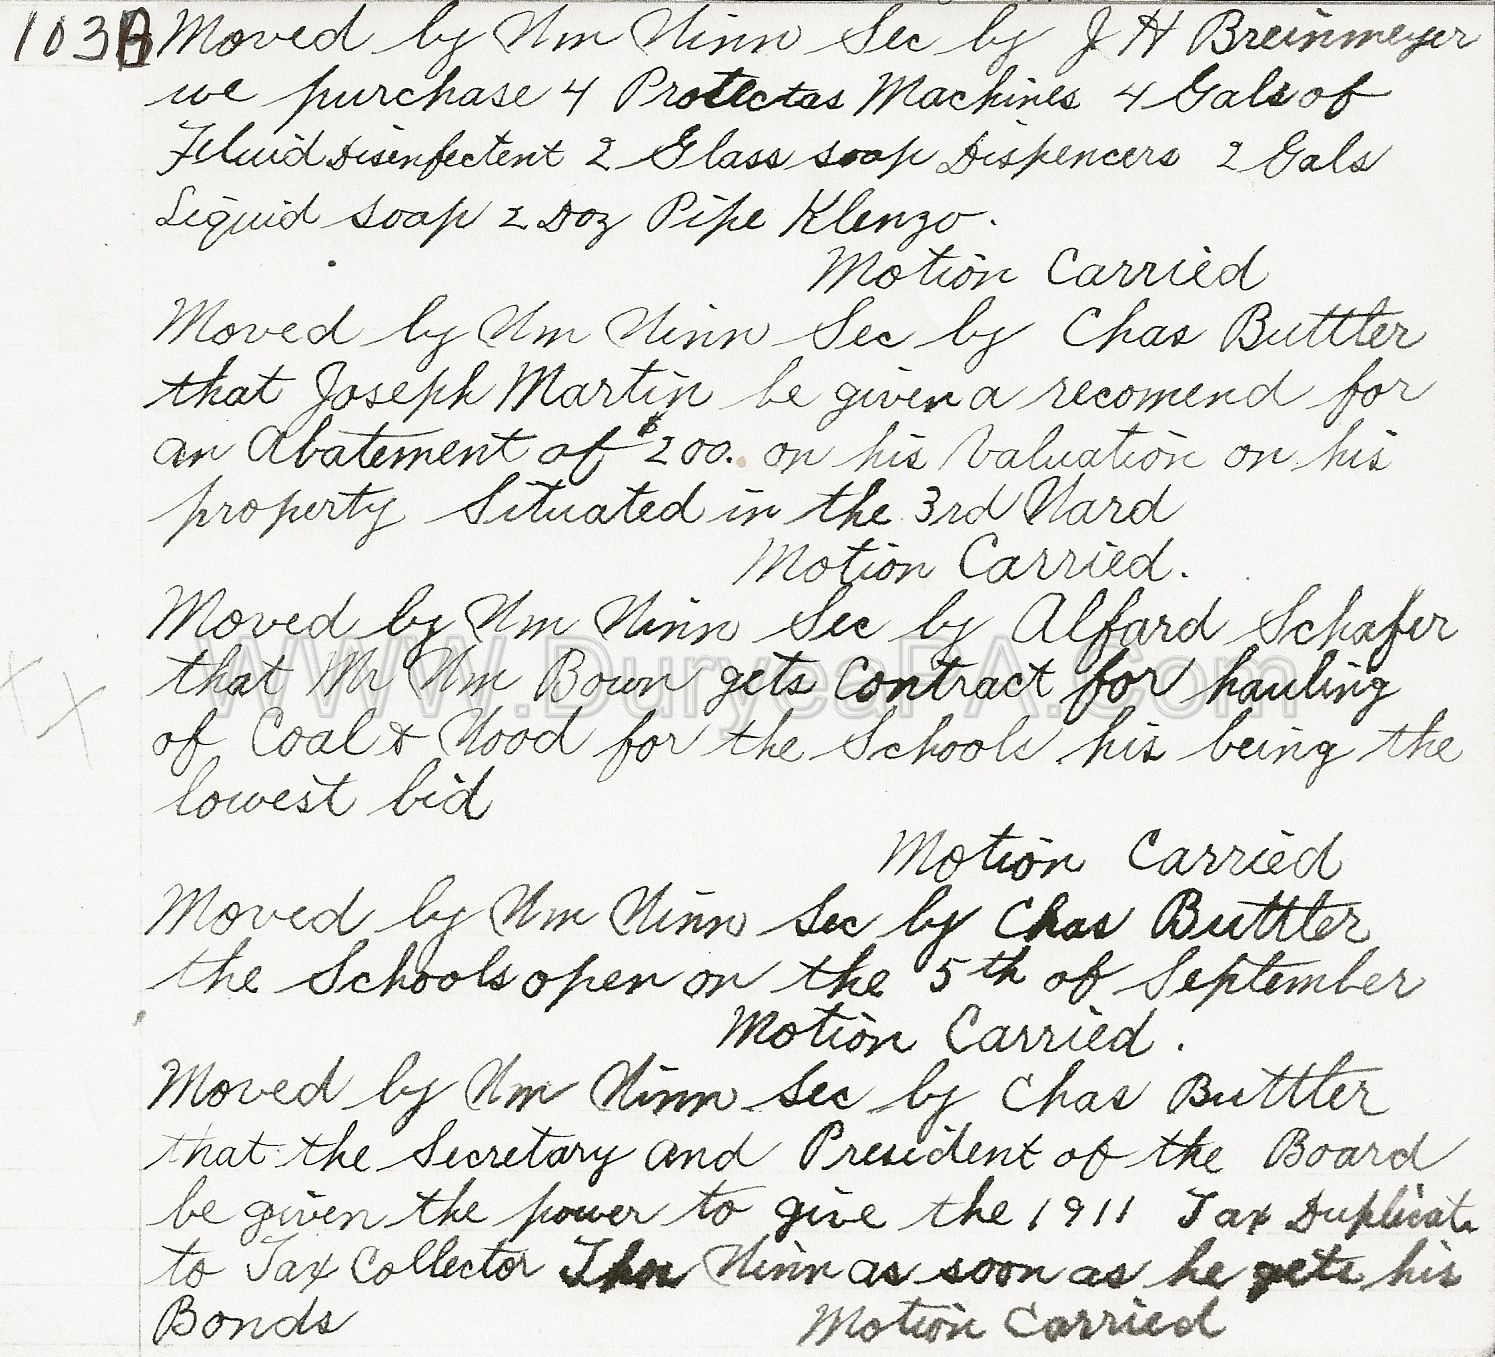 103B Moved by Wm Winn Sec by J H Breinmeyer
we purchase 4 Protectas Machines 4 Gals of
Fluid Disenfectent 2 Glass soap Dispencers 2 Gals
Liquid soap 2 Doz Pipe Klenzo.
Motion Carried
Moved by Wm Winn Sec by Chas Buttler
that Joseph Martin be given a recomend for
an Abatement of $200. on his Valuation on his
property Situated in the 3rd Ward
Motion Carried.
Moved by Wm Winn Sec by Alfard Schafer
WWW.DuryeaPA.com
that Mr Wm Bown gets Contract for hauling
of Coal & Wood for the Schools his being the
lowest bid
Motion Carried
Moved by Wm Winn Sec by Chas Buttler
the Schools open on the 5th of September
Motion Carried.
Moved by Wm Winn Sec by Chas Buttler
that the Secretary and President of the Board
be given the power to give the 1911 Tax Duplicate
to Tax Collector Thos Winn as soon as he gets his
Bonds Motion Carried